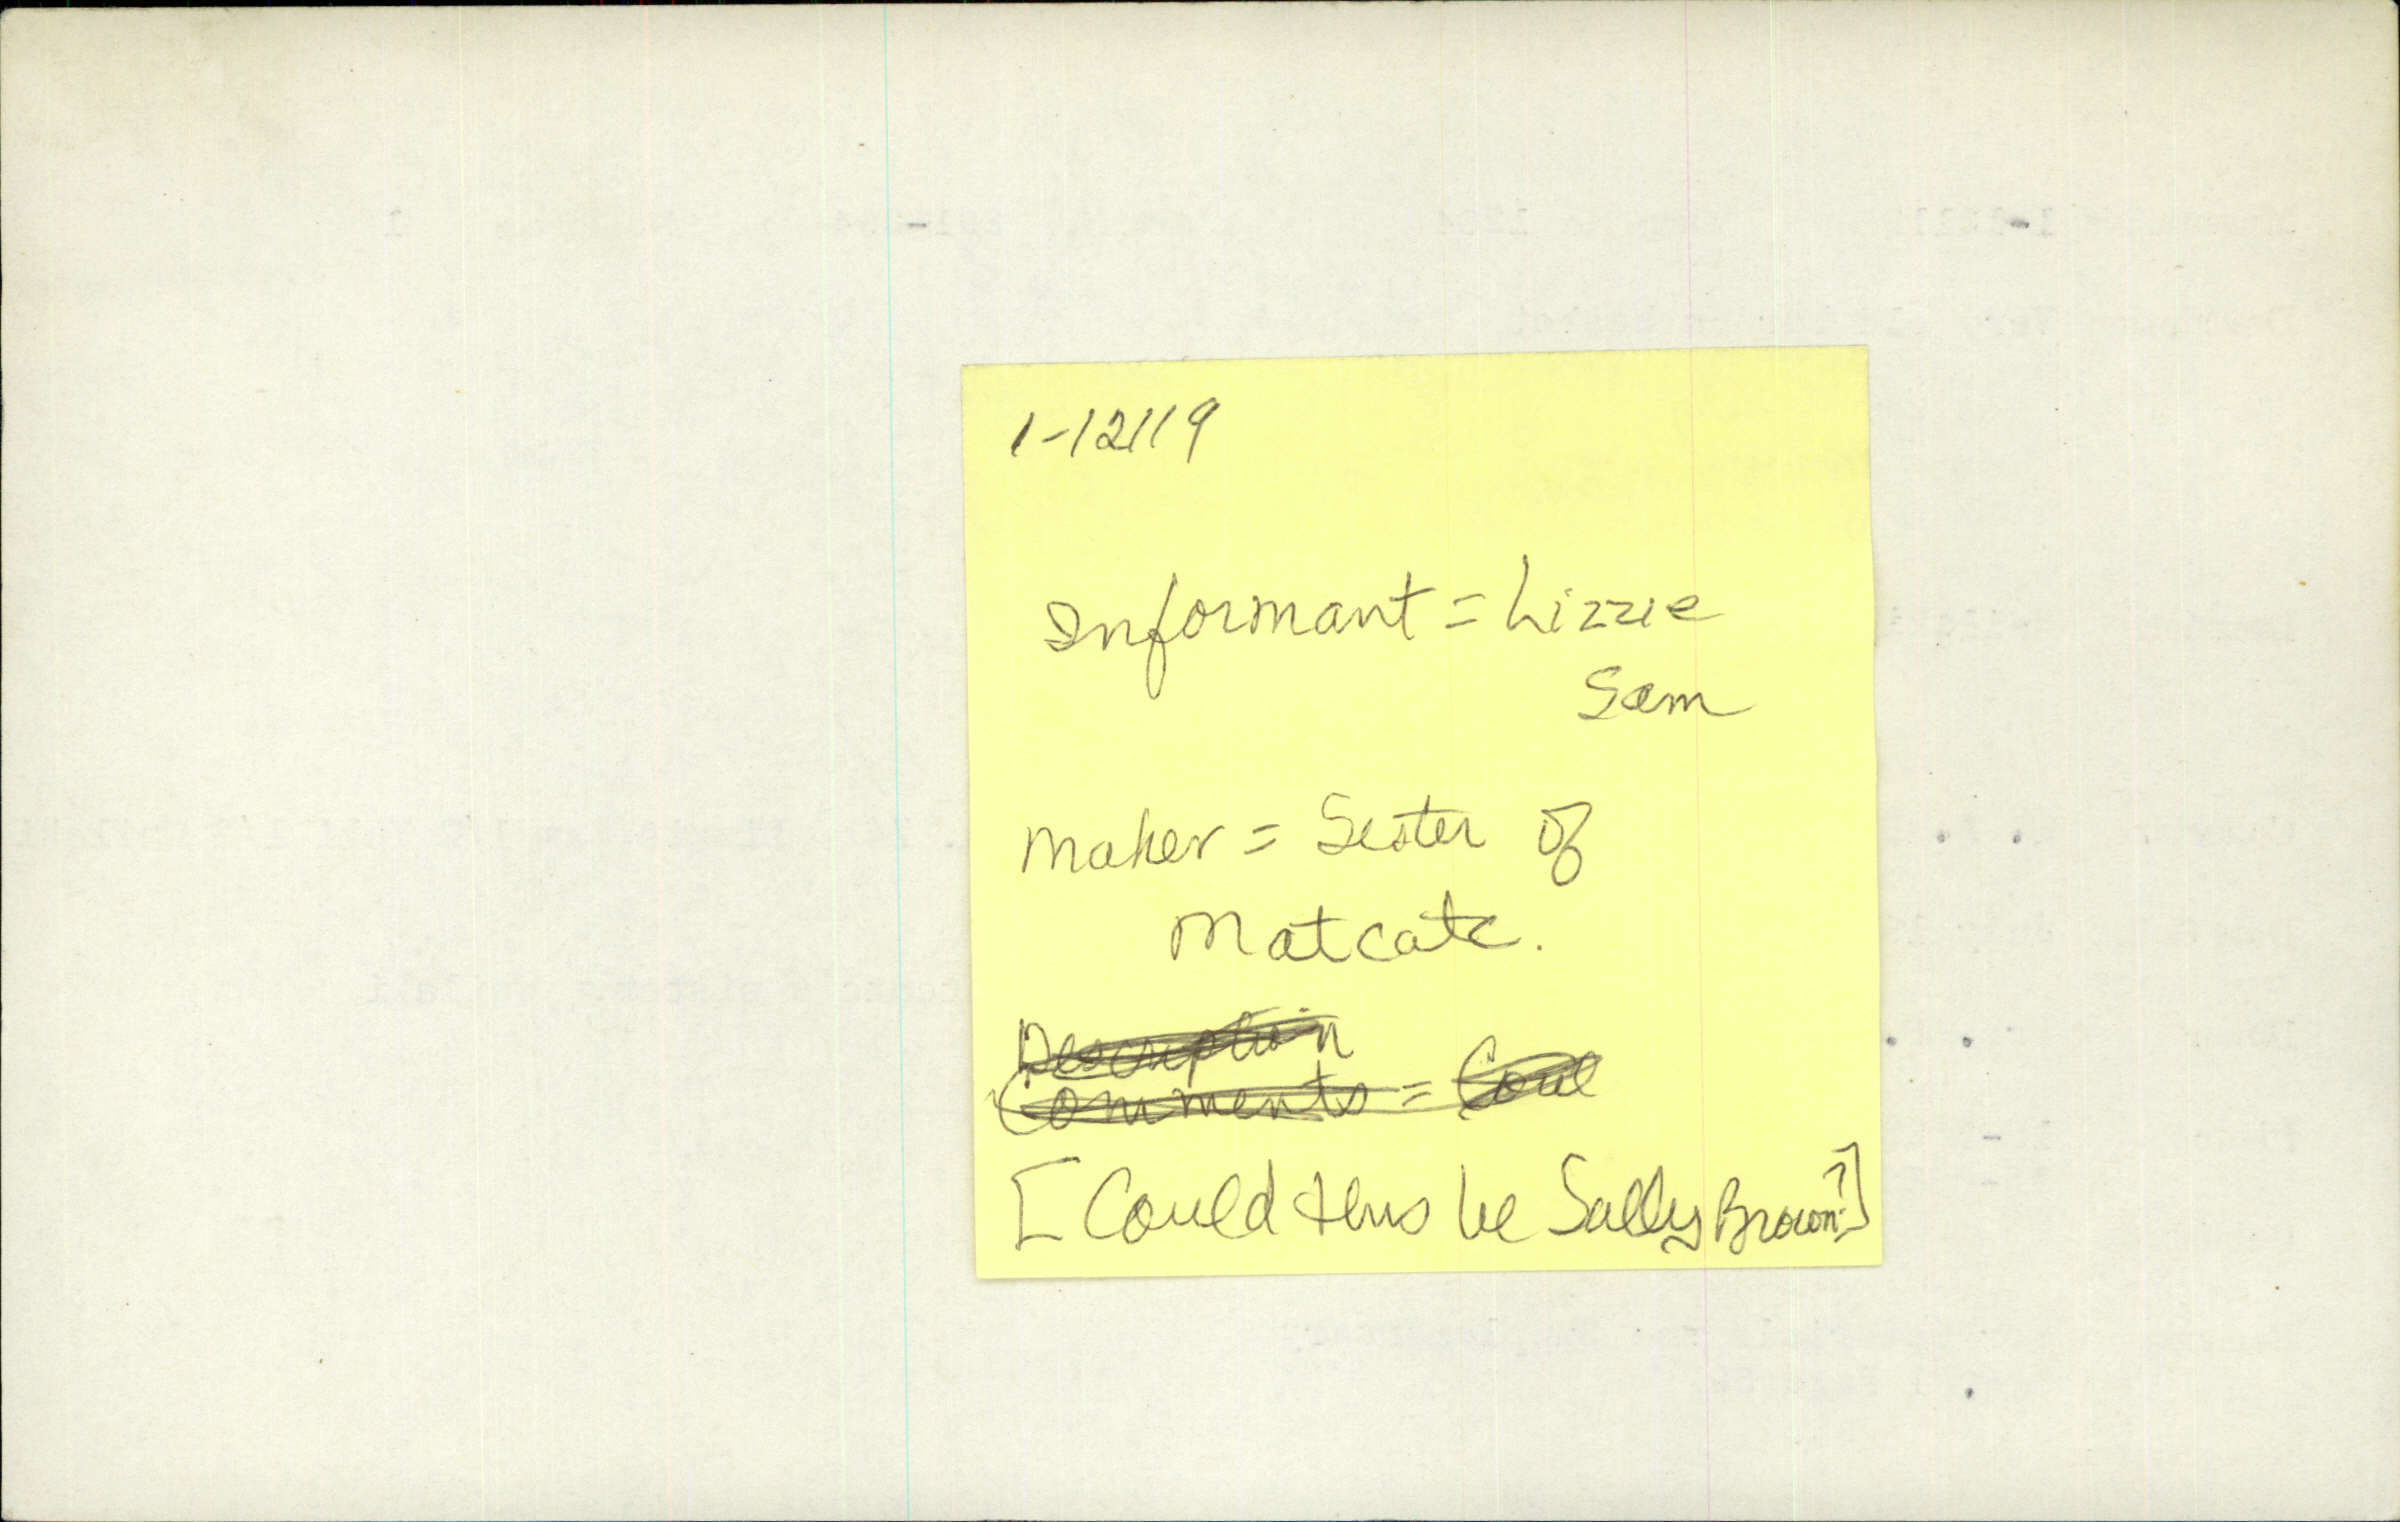 1-12119
Informant = Lizzie
Sam
Maker = Sister of
Matcate.
Description
Comments = Coul
[Could this be Sally Brown?]